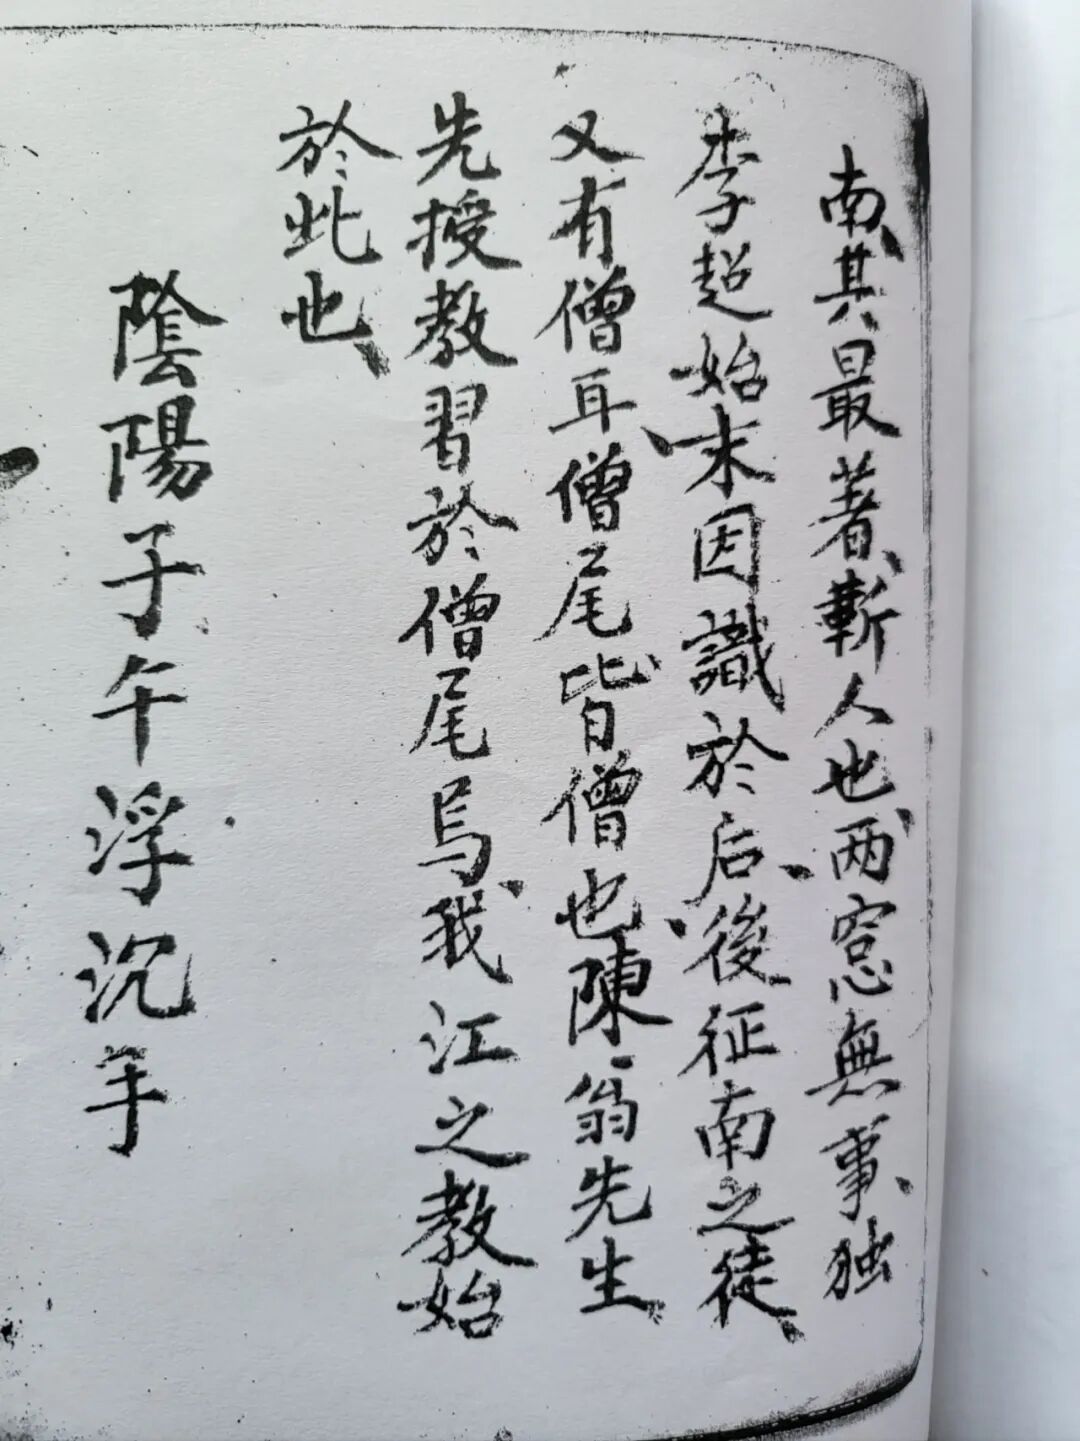 南、其最著、斬人也、两窓無事、独
李超始末、因識於后、後征南之徒、
又有僧耳、僧尾、皆僧也、陳翁先生
先授教習於僧尾焉、我江之教始
於此也、
陰陽子午浮沉手